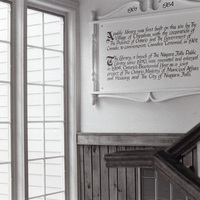 1967 1984
A public library was first built on this site by the
Village of Chippawa, with the cooperation of
the Province of Ontario and The Government of
Canada, to commemorate Canada's Centennial, in 1967.
The Library, a branch of The Niagara Falls Public
Library since 1970, was renovated and enlarged
in 1984, Ontario's Bicentennial Year, as a joint
project of The Ontario Ministry of Municipal Affairs
and Housing and The City of Niagara Falls.